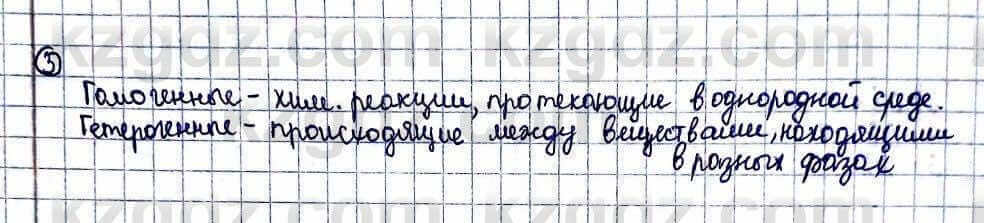 ③
Гомогенные - хим. реакции, протекающие в однородной среде.
Гетерогенные - происходящие между веществами, находящимися
в разных фазах
kzgdz.com